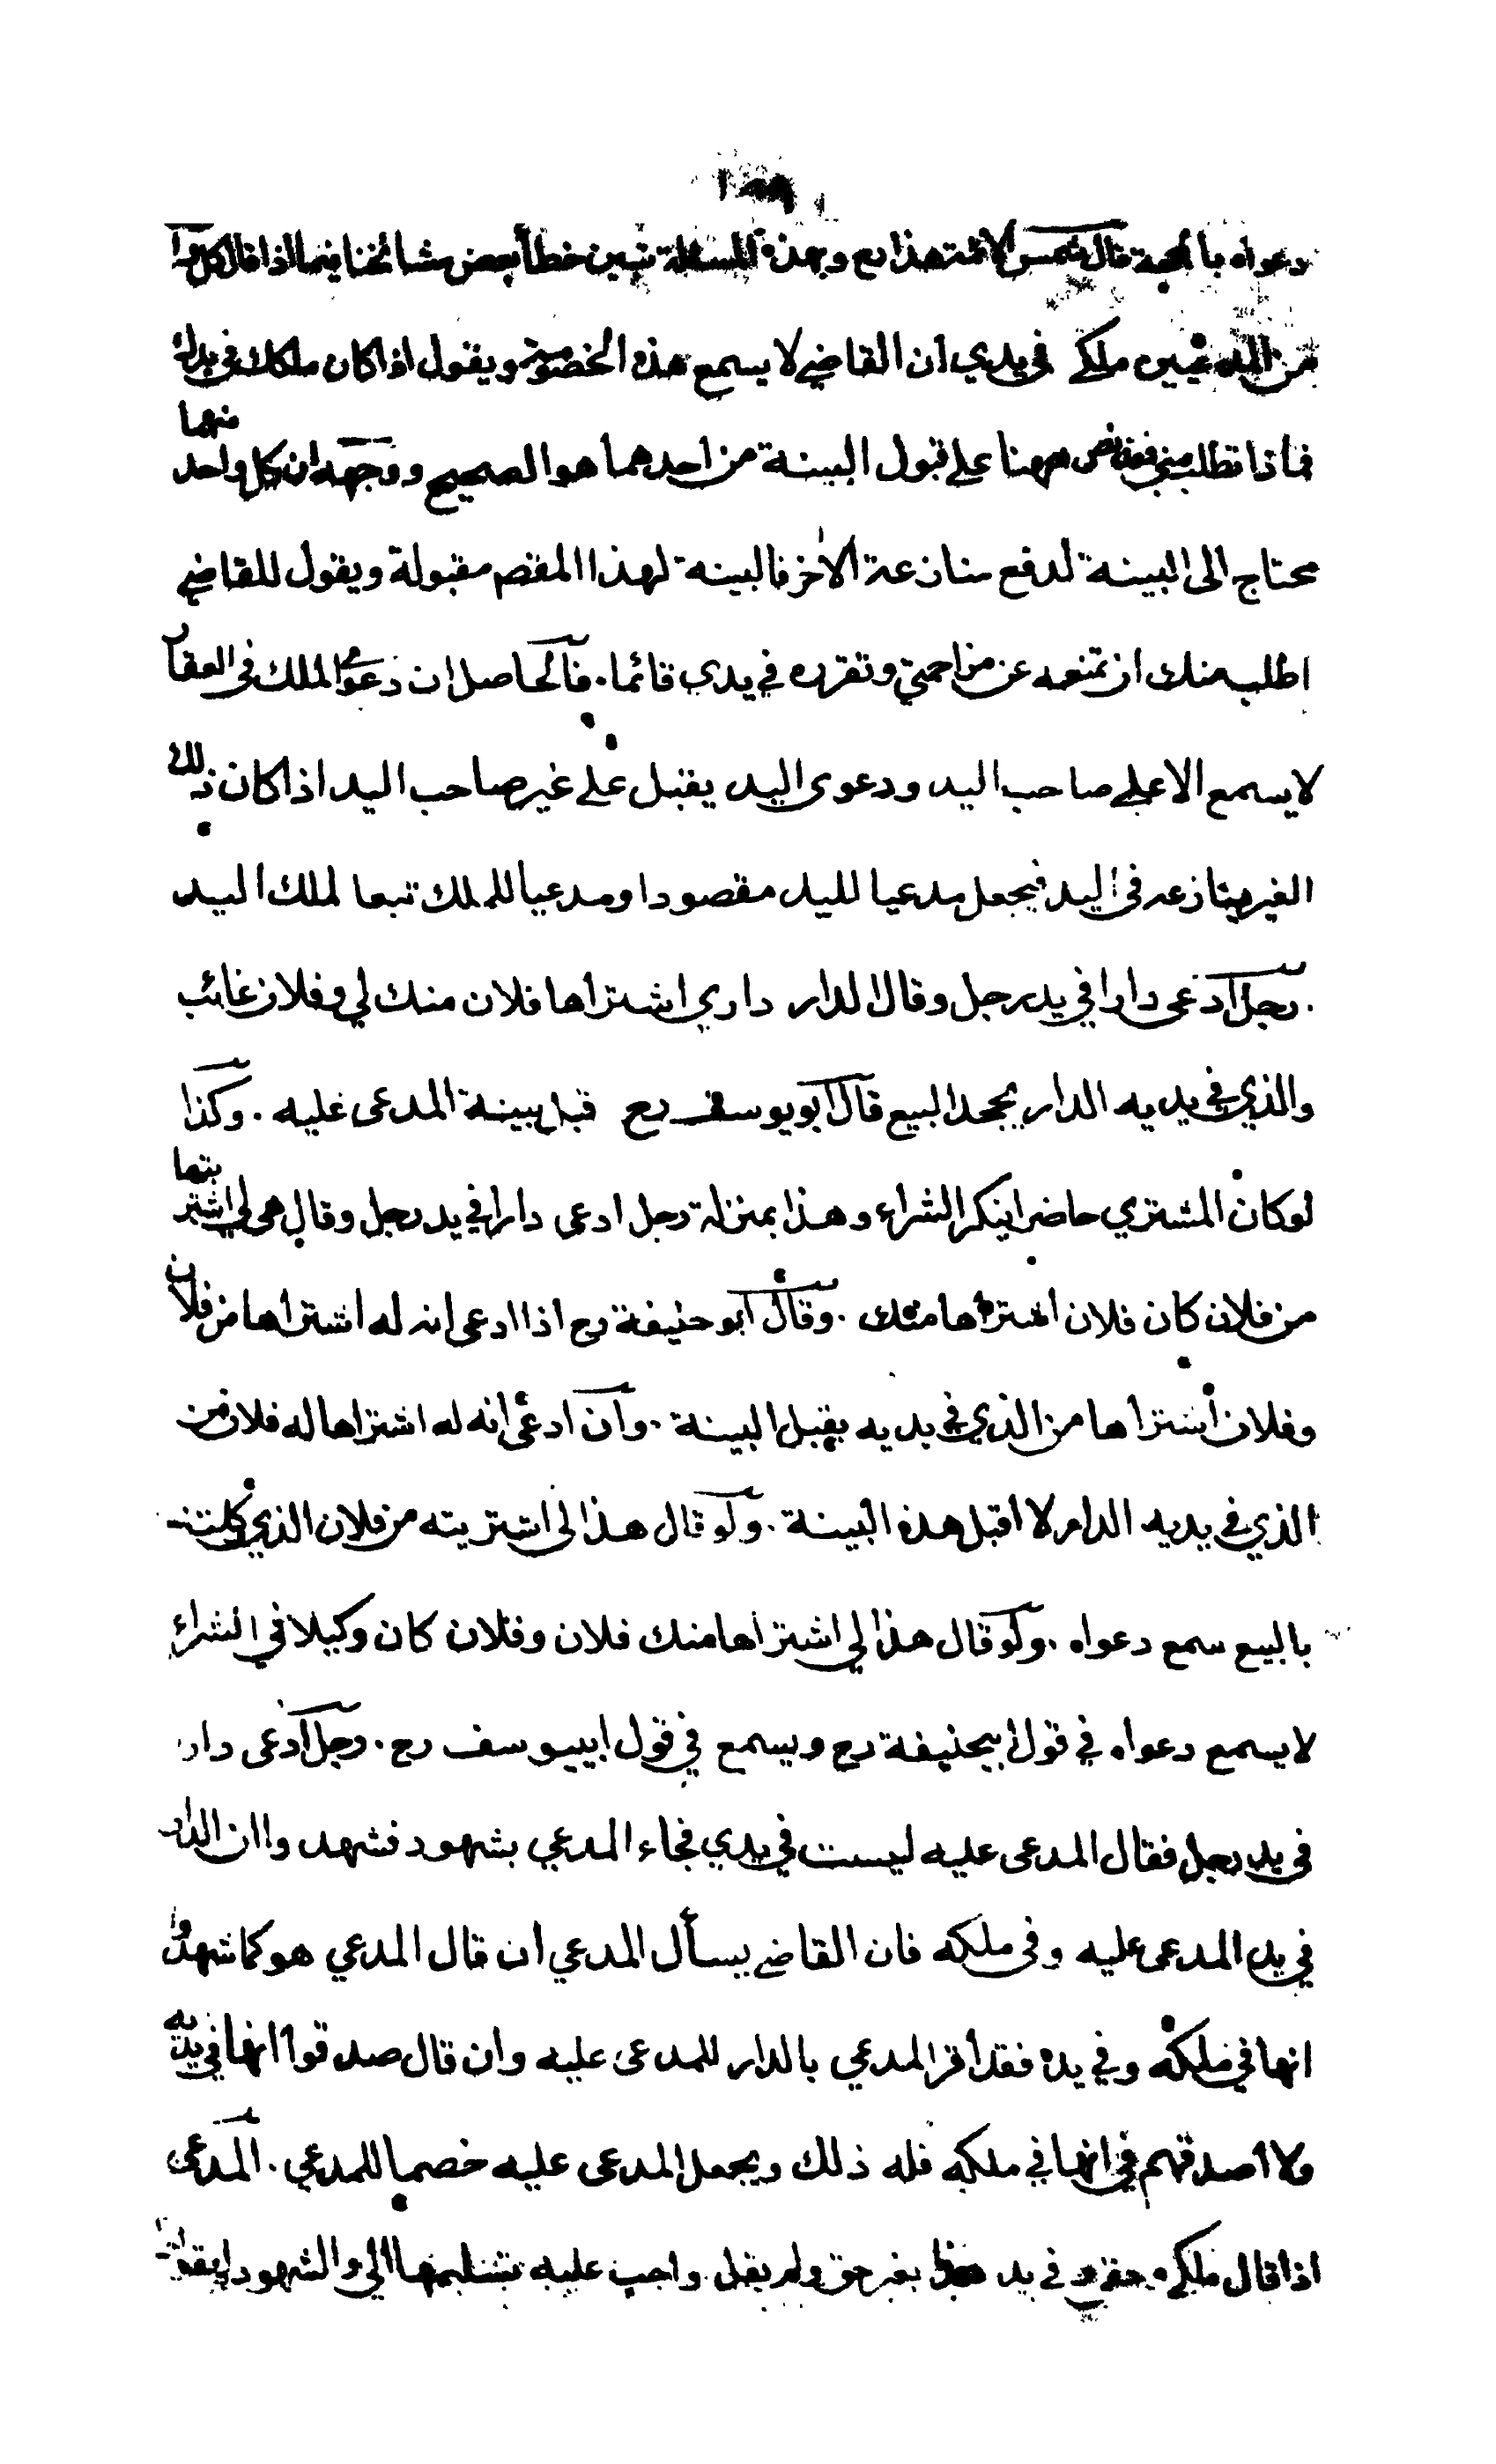 دعواه بالحجة قال شمس الائمة هذا رح وبهذه المسئلة تبين خطأ بعض مشائخنا فيما اذا قال كل واحد
من المدعيين ملكي في يدي ان القاضي لا يسمع هذه الخصومة ويقول اذا كان ملكك في يدك
فماذا تطلب مني فقد نص ههنا على قبول البينة من احدهما هو الصحيح ووجهه ان كل واحد منهما
محتاج الى البينة لدفع منازعة الاخر فالبينة لهذا المقصم مقبولة ويقول للقاضي
اطلب منك ان تمنعه عن مزاحمتي وتقرره في يدي قائما . فالحاصل ان دعوى الملك في العقار
لا يسمع الا على صاحب اليد ودعوى اليد يقبل على غير صاحب اليد اذا كان ذلك
الغير ينازعه في اليد فيجعل مدعيا لليد مقصودا ومدعيا للملك تبعا لملك اليد
. رجل ادعى دارا في يد رجل وقال الدار داري اشتراها فلان منك لي وفلان غائب
والذي في يديه الدار يجحد البيع قال ابو يوسف رح قبل بينة المدعى عليه . وكذا
لو كان المشتري حاضرا ينكر الشراء وهذا بمنزلة رجل ادعى دارا في يد رجل وقال هي لي اشتريتها
من فلان كان فلان اشتراها منك . وقال ابو حنيفة رح اذا ادعى انه له اشتراها من فلان
وفلان اشتراها من الذي في يديه يقبل البينة . وان ادعى انه له اشتراها له فلان من
الذي في يديه الدار لا اقبل هذه البينة . ولو قال هذا لي اشتريته من فلان الذي وكلته
بالبيع سمع دعواه . ولو قال هذا لي اشتراها منك فلان وفلان كان وكيلا في الشراء
لا يسمع دعواه في قول ابيحنيفة رح ويسمع في قول ابييوسف رح . رجل ادعى دارا
في يد رجل فقال المدعى عليه ليست في يدي فجاء المدعي بشهود فشهدوا ان الدار
في يد المدعى عليه وفي ملكه فان القاضي يسأل المدعي ان قال المدعي هو كما شهدوا
انها في ملكه وفي يده فقد اقر المدعي بالدار للمدعى عليه وان قال صدقوا انها في يديه
ولا اصدقهم في انها في ملكه فله ذلك ويجعل المدعى عليه خصما للمدعي . المدعي
اذا قال ملكي وحقي في يد هذا بغير حق ولم يقل واجب عليه تسليمها الي والشهود لم يقولوا